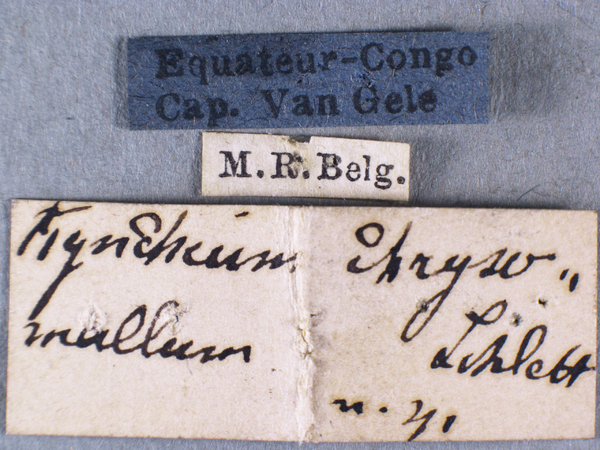 Equateur-Congo
Cap. Van Gele
M.R.Belg.
Rynchium Chryso„
mallum Schlett
n. sp.